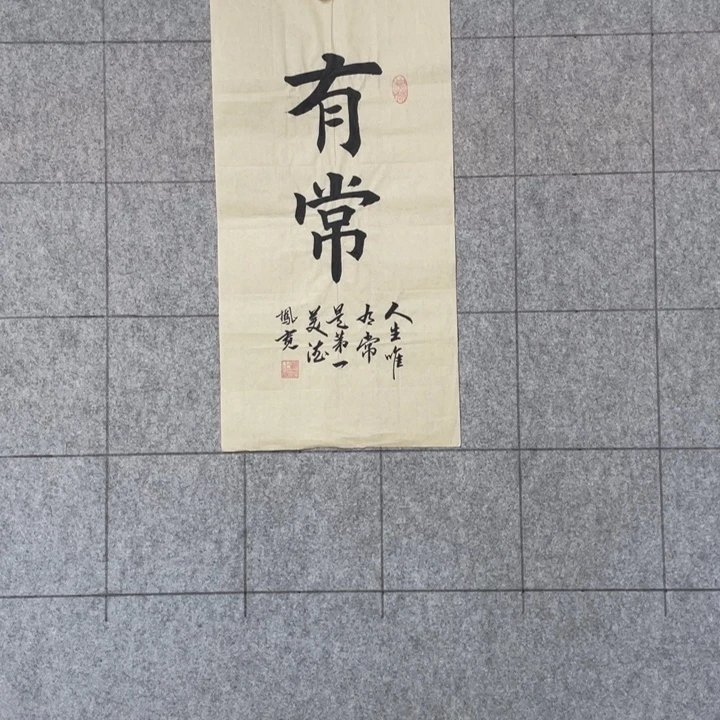 有常
人生唯
有常
是第一
美德